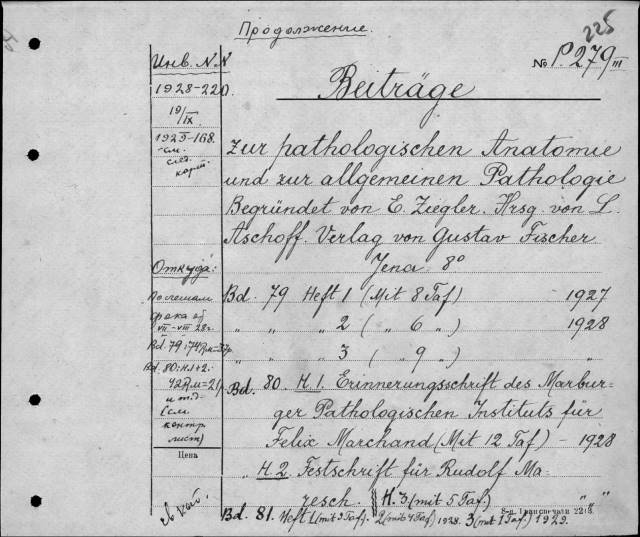 Продолжение.
225
№ P.279 III
Инв. N.N
1928-220.
19/IX
1929-168.
-см.
след.
карт.
Beiträge
zur pathologischen Anatomie
und zur allgemeinen Pathologie
Begründet von E. Ziegler. Hrsg. von L.
Aschoff. Verlag von Gustav Fischer
Jena 8°
Откуда:
VII-VIII 28г.
Bd. 79: 74Rm=
Bd. 80: H.1+2:
42Rm=
и т.д.
(см.
контр
лист)
Цена
Bd. 79 Heft 1 (Mit 8 Taf) 1927
" " " 2 ( " 6 " ) 1928
" " " 3 ( " 9 " ) "
Bd. 80. H.1. Erinnerungsschrift des Marbur-
ger Pathologischen Instituts für
Felix Marchand (Mit 12 Taf) - 1928
" H.2. Festschrift für Rudolf Ma-
resch. || H.3 (mit 5 Taf.) " "
Bd. 81. Heft 1 (mit 3 Taf.) 2 (mit 4 Taf) 1928. 3 (mit 1 Taf.) 1929.